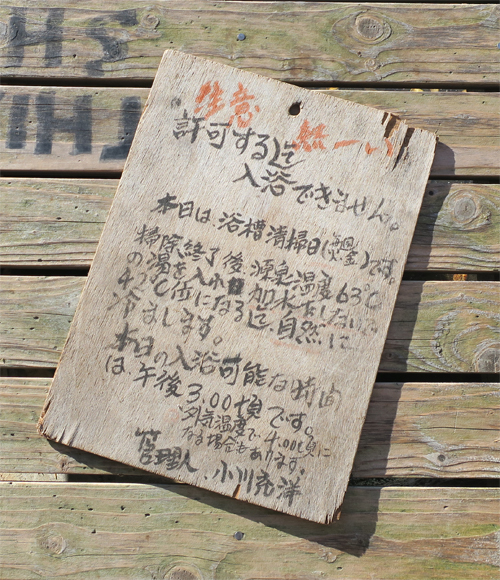 注意 熱ーい
許可するまで
入浴できません。
本日は、浴槽清掃日(毎週金)です。
掃除終了後、源泉温度63℃
の湯を入れ、加水をしないで
42℃位になるまで、自然に
冷まします。
本日の入浴可能な時間
は、午後3.00頃です。
外気温度で4.00頃に
なる場合もあります。
管理人、小川克洋